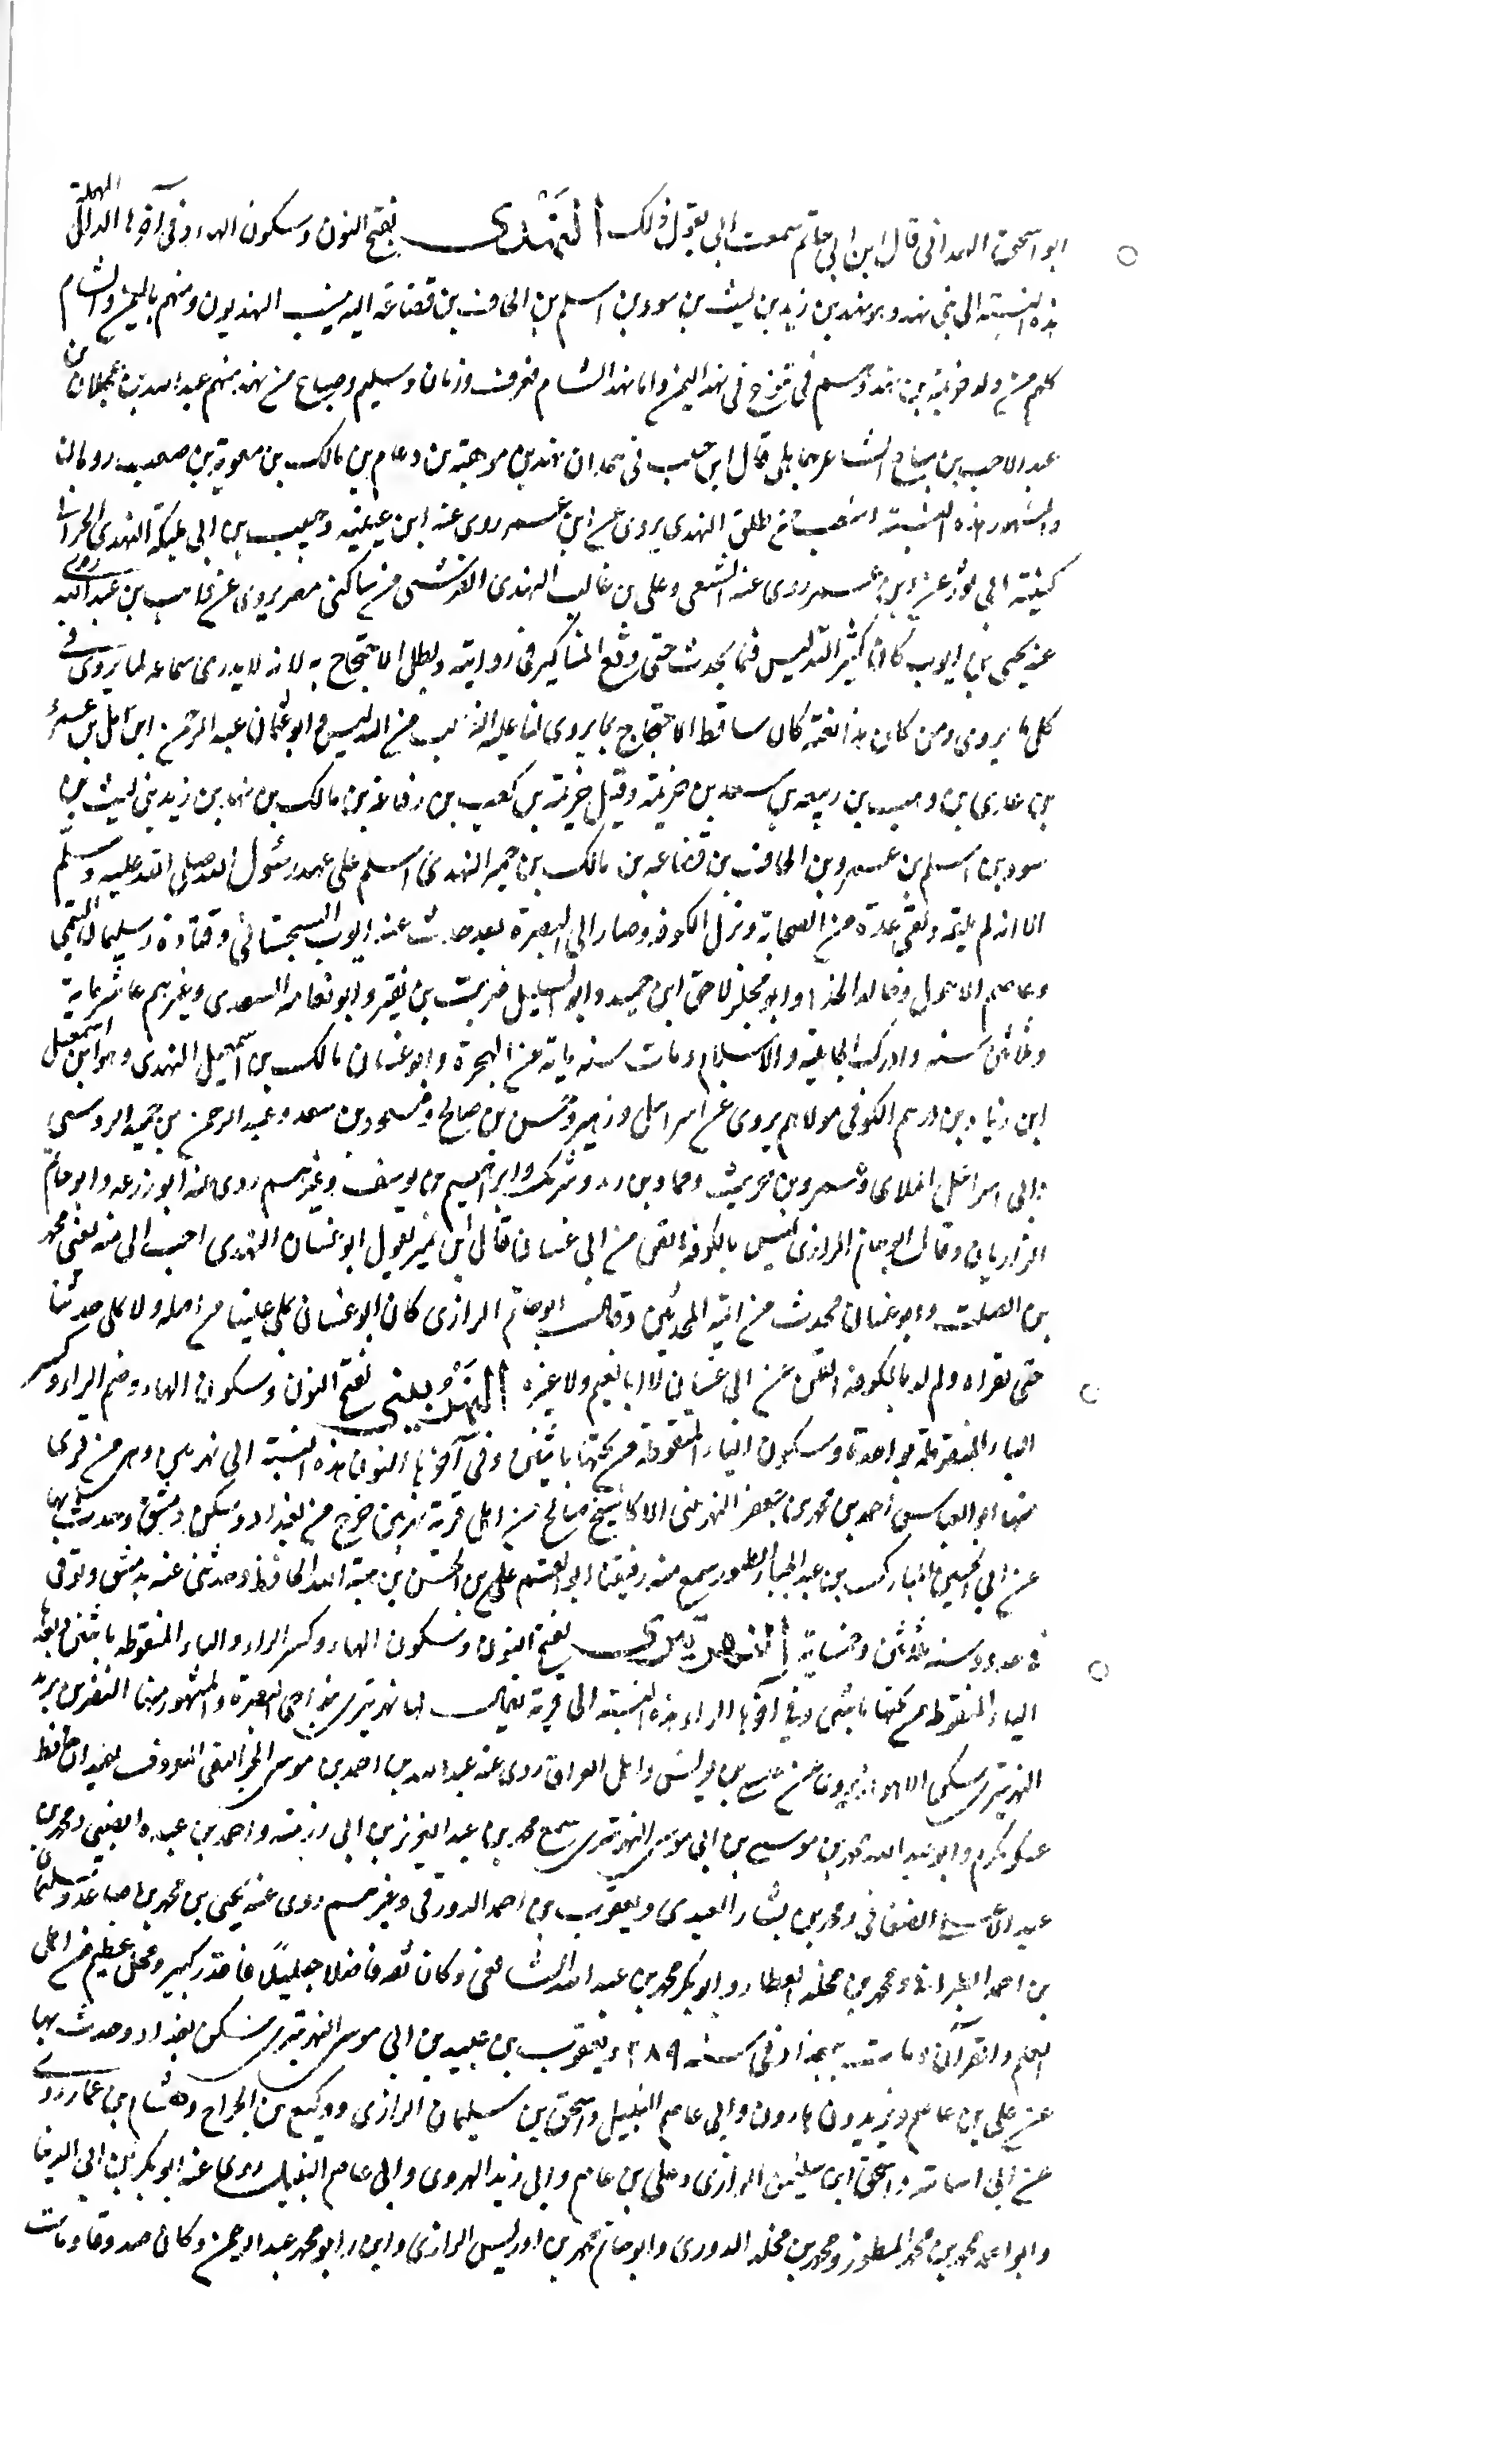 ابو اسحق الهمدانى قال ابن ابى حاتم سمعت ابى يقول ذلك النَهْدى بفتح النون وسكون الهاء وفى آخرها الدال المهملة
هذه النسبة الى بنى نهد وهو نهد بن زيد بن ليث بن سود بن اسلم بن الحاف بن قضاعة اليه ينسب النهديون ومنهم باليمن والشام
كلهم من ولد خزيمة بن نهد وهم فى تنوخ فى نهد اليمن واما نهد الشام فعرف وزمان وسليم وصباح من نهد منهم عبد الله بن عجلان بن
عبد الاحب بن صباح الشاعر جاهلى قال ابن حبيب فى همدان نهد بن موهبة بن دعام بن مالك بن معوية بن صعب رومان
والمشهور بهذه النسبة طلق النهدى يروى عن ابن عمر روى عنه ابن عيينة وحبيب بن ابى مليكة النهدى الحرانى
كنيته ابى ثور عن ابن عمر روى عنه الشعبى وعلى بن غالب النهدى القرشى من ساكنى مصر يروى عن واهب بن عبد الله روى
عنه يحيى بن ايوب كان كثير التدليس فيما يحدث حتى وقع المناكير فى روايته وبطل الاحتجاج به لانه لا يدرى سماعه لما يروى فى
كل ما يروى ومن كان هذا نعته كان ساقط الاحتجاج بما يروى لما عليه الغالب من التدليس وابو عثمان عبد الرحمن ابن مل بن عمرو
بن عدى بن وهب بن ربيعه بن سعد بن خزيمة وقيل خزيمة بن كعب بن رفاعة بن مالك بن نهد بن زيد بن ليث بن
سود بن اسلم بن عمرو بن الحاف بن قضاعه بن مالك بن حمير النهدى اسلم على عهد رسول الله صلى الله عليه وسلم
الا انه لم يلقه ولقى عدة من الصحابة ونزل الكوفه وصار الى البصرة بعد حدث عنه ايوب السجستانى وقتادة وسليمان التيمى
وعاصم الاحول وخالد الحذاء وابو مجلز لاحق ابن حميد وابو السليل ضريب بن نقير وابو نعامه السعدى وغيرهم عاش مايه
وثلثين سنه وادرك الجاهلية والاسلام ومات سنه مايه من الهجرة وابو غسان مالك بن اسمعيل النهدى وهو ابن اسمعيل
ابن زياد بن درهم الكوفى مولاهم يروى عن اسرائيل وزهير وحسن بن صالح ومسعود بن سعد وعبد الرحمن بن حميد الروسى
وابى اسرائيل الملاى وعمرو بن حريث وحماد بن زيد وشريك وابراهيم بن يوسف وغيرهم روى عنه ابو زرعه وابو حاتم
الرازيان وقال ابو حاتم الرازى ليس بالكوفه اتقن من ابى غسان قال ابن نمير يقول ابو غسان النهدى احب الى منه يعنى محمد
بن الصلت وابو غسان محدث من ائمة المحدثين وقال ابو حاتم الرازى كان ابو غسان يملى علينا من اصله ولا يملى حديثا
حتى يقراه ولم ار بالكوفه اتقن من ابى غسان لا ابا نعيم ولا غيره النَهْرُبينى بفتح النون وسكون الهاء وضم الراء وكسر
الباء المنقوطة بواحدة وسكون الياء المنقوطة من تحتها باثنتين وفى آخرها النون هذه النسبة الى نهربين وهى من قرى
منها ابو العباس احمد بن محمد بن جعفر النهربينى الاكا شيخ صالح من اهل قرية نهربين خرج من بغداد وسكن دمشق وحدث بها
عن ابى الحسين المبارك بن عبد الجبار الطيورى سمع منه رفيقنا ابو القسم على بن الحسن بن هبة الله الحافظ وحدثنى عنه بدمشق وتوفى
فى حدود سنه ثلاثين وخمسماية النهرتيرى بفتح النون وسكون الهاء وكسر الراء والتاء المنقوطه باثنتين وبعدها
الياء المنقوطه من تحتها باثنتين وفى آخرها الراء هذه النسبة الى قرية يقال لها نهرتيرى بنواحى البصرة والمشهور منها النضر بن يزيد
النهرتيرى سكن الاهواز يروى عن عيسى بن يونس واهل العراق روى عنه عبد الله بن احمد بن موسى الجواليقى المعروف بعبدان حافظ
عسكر مكرم وابو عبد الله محمد بن موسى بن ابى موسى النهرتيرى سمع محمد بن عبد العزيز بن ابى رزمة واحمد بن عبده الضبى ومحمد بن
عبد الاعلى الصنعانى ومحمد بن بشار العبدى ويعقوب بن احمد الدورقى وغيرهم روى عنه يحيى بن محمد بن صاعد وسليمان
بن احمد الطبرانى ومحمد بن مخلد العطار وابو بكر محمد بن عبد الله الشافعى وكان ثقه فاضلا جليلاً ذا قدر كبير ومحل عظيم من اهل
العلم والقرآن ومات ببغداد فى سنه ٢٨٩ ويعقوب بن عبيد بن ابى موسى النهرتيرى سكن بغداد وحدث بها
عن على بن عاصم ويزيد بن هارون وابى عاصم النبيل واسحق بن سليمان الرازى ووكيع بن الجراح وهشام بن عمار وروى
عن ابى اسامة واسحق ابن سليمن الرازى وعلى بن عاصم وابى زيد الهروى وابى عاصم النبيل روى عنه ابو بكر بن ابى الدنيا
وابو احمد محمد بن محمد المطرز ومحمد بن مخلد الدورى وابو حاتم محمد بن ادريس الرازى وابنه ابو محمد عبد الرحمن وكان صدوقا ومات